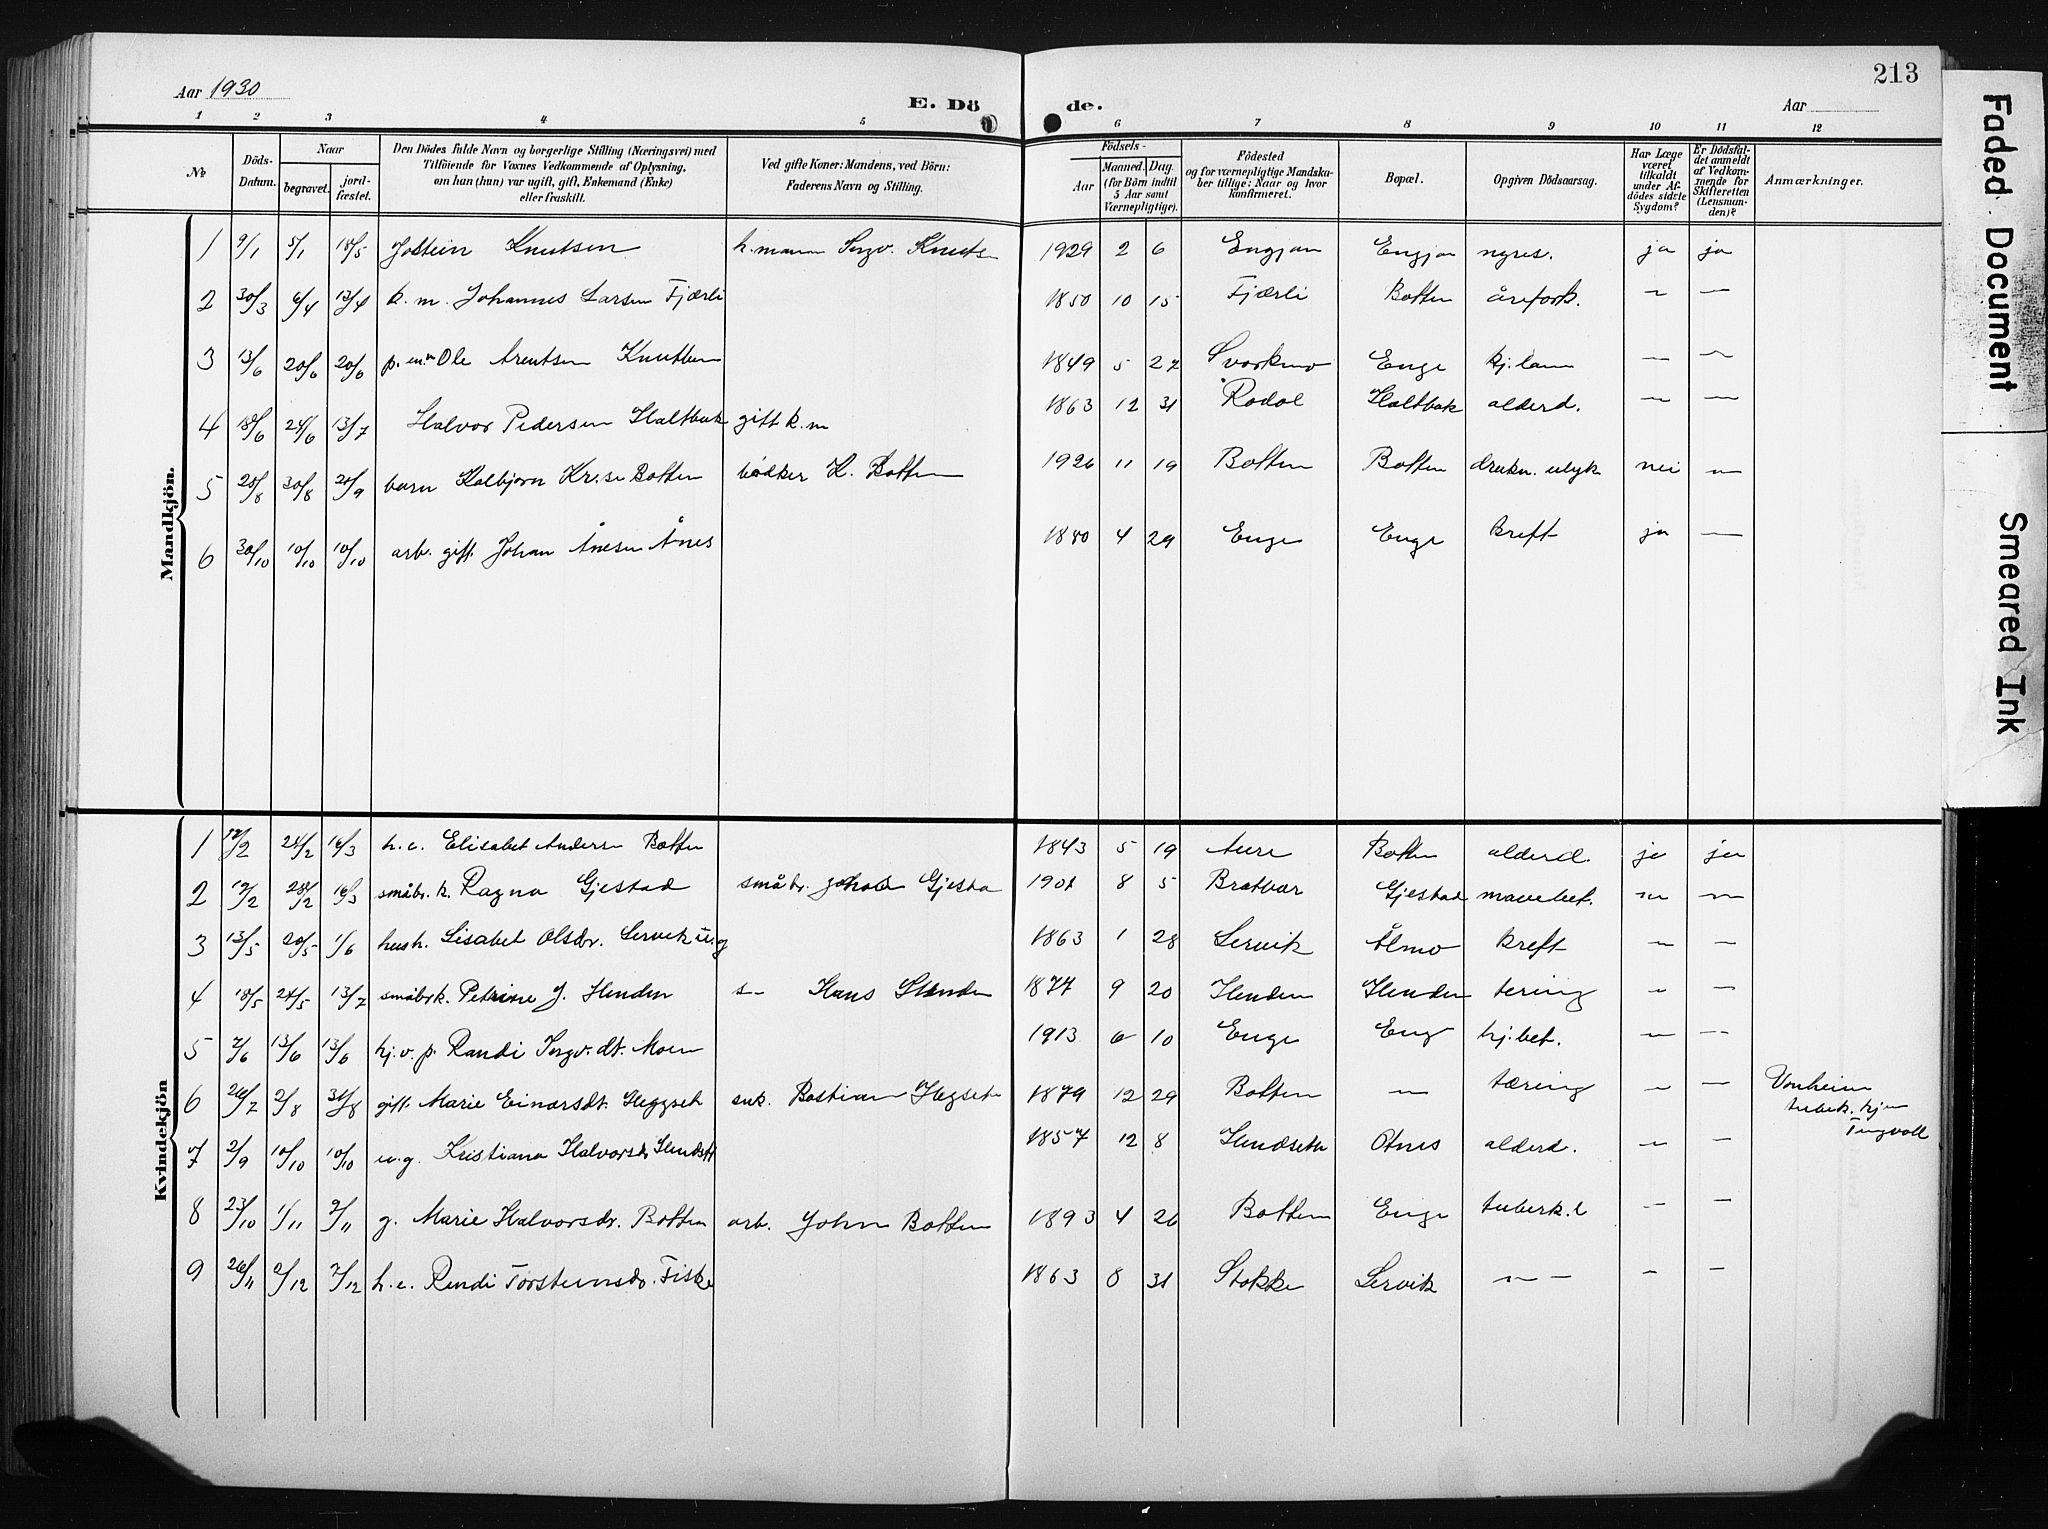 213
Aar 1930
E. Dö de.
Aar
1 2 3 4 5 6 7 8 9 10 11 12
№
Döds-Datum.
Naar
begravet.
jord-fæstet.
Den Dödes fulde Navn og borgerlige Stilling (Næringsvei) med
Tilföiende for Voxnes Vedkommende af Oplysning,
om han (hun) var ugift, gift, Enkemand (Enke)
eller fraskilt.
Ved gifte Koner: Mandens, ved Börn:
Faderens Navn og Stilling.
Födsels-
Aar
Maaned. Dag.
(for Börn indtil
5 Aar samt
Værnepligtige).
Födested
og for værnepligtige Mandska-
ber tillige: Naar og hvor
konfirmeret.
Bopæl.
Opgiven Dödsaarsag.
Har Læge
været
tilkaldt
under Af-
dödes sidste
Sygdom?
Er Dödsfal-
det anmeldt
af Vedkom-
mende for
Skifteretten
(Lensman-
den)?
Anmærkninger.
Mandkjön.
1 9/1 5/1 18/5 Jostein Knutsen k. mann Ingv. Knuts 1929 2 6 Engjan Engjan nyres. ja ja
2 30/3 6/4 13/4 k. m. Johannes Larsen Fjærli 1850 10 15 Fjærli Botten årefork. — —
3 13/6 20/6 20/6 p. m. Ole Arentsen Knutsen 1849 5 27 Svorkmo Enge hj. lam — —
4 18/6 24/6 13/7 Halvor Pedersen Haltbak gift k. m 1863 12 31 Rodal Haltbak alderd. — —
5 28/8 30/8 21/9 barn Kolbjørn Kr.sn Botten bødker K. Botten 1926 11 19 Botten Botten drukn. ulyk nei —
6 30/10 10/10 10/10 arb. gift. Johan Ånesen Ånes 1880 4 29 Enge Enge kreft ja —
Kvindekjön
1 12/2 24/2 16/3 h. e. Elisabet Andersn Botten 1843 5 19 Aure Botten alderd. ja ja
2 19/2 28/2 16/3 småbr. k. Ragna Gjestad småbr. Johan Gjesta 1901 8 5 Bratvær Gjestad mavebet. — —
3 13/5 20/5 1/6 hush. Lisabet Olsdr. Lervik u. g 1863 1 28 Lervik Ålmo kreft — —
4 18/5 24/5 13/7 småbrk. Petrine J. Henden s— Hans Henden 1877 9 20 Henden Henden tering — —
5 7/6 13/6 13/6 hj. v. p. Randi Ingv. dt. Moen 1913 6 10 Enge Eng hj. bet. — —
6 26/7 2/8 31/8 gift. Marie Einarsdt. Heggset snk. Bastian Hegset 1879 12 29 Botten — tæring — — Vonheim
tuberk. hjem
Tingvoll
7 2/9 10/10 10/10 u. g. Kristiana Halvorsdr Hendset 1857 12 8 Hendseth Otnes alderd. — —
8 23/10 1/11 9/11 g. Marie Halvorsdr. Botten arb. John Botten 1893 4 26 Botten Enge tuberk. l — —
9 26/11 2/12 7/12 h. e. Randi Torsteinsdr. Fiske 1863 8 31 Stokke Lervik — — — —
Faded Document
Smeared Ink